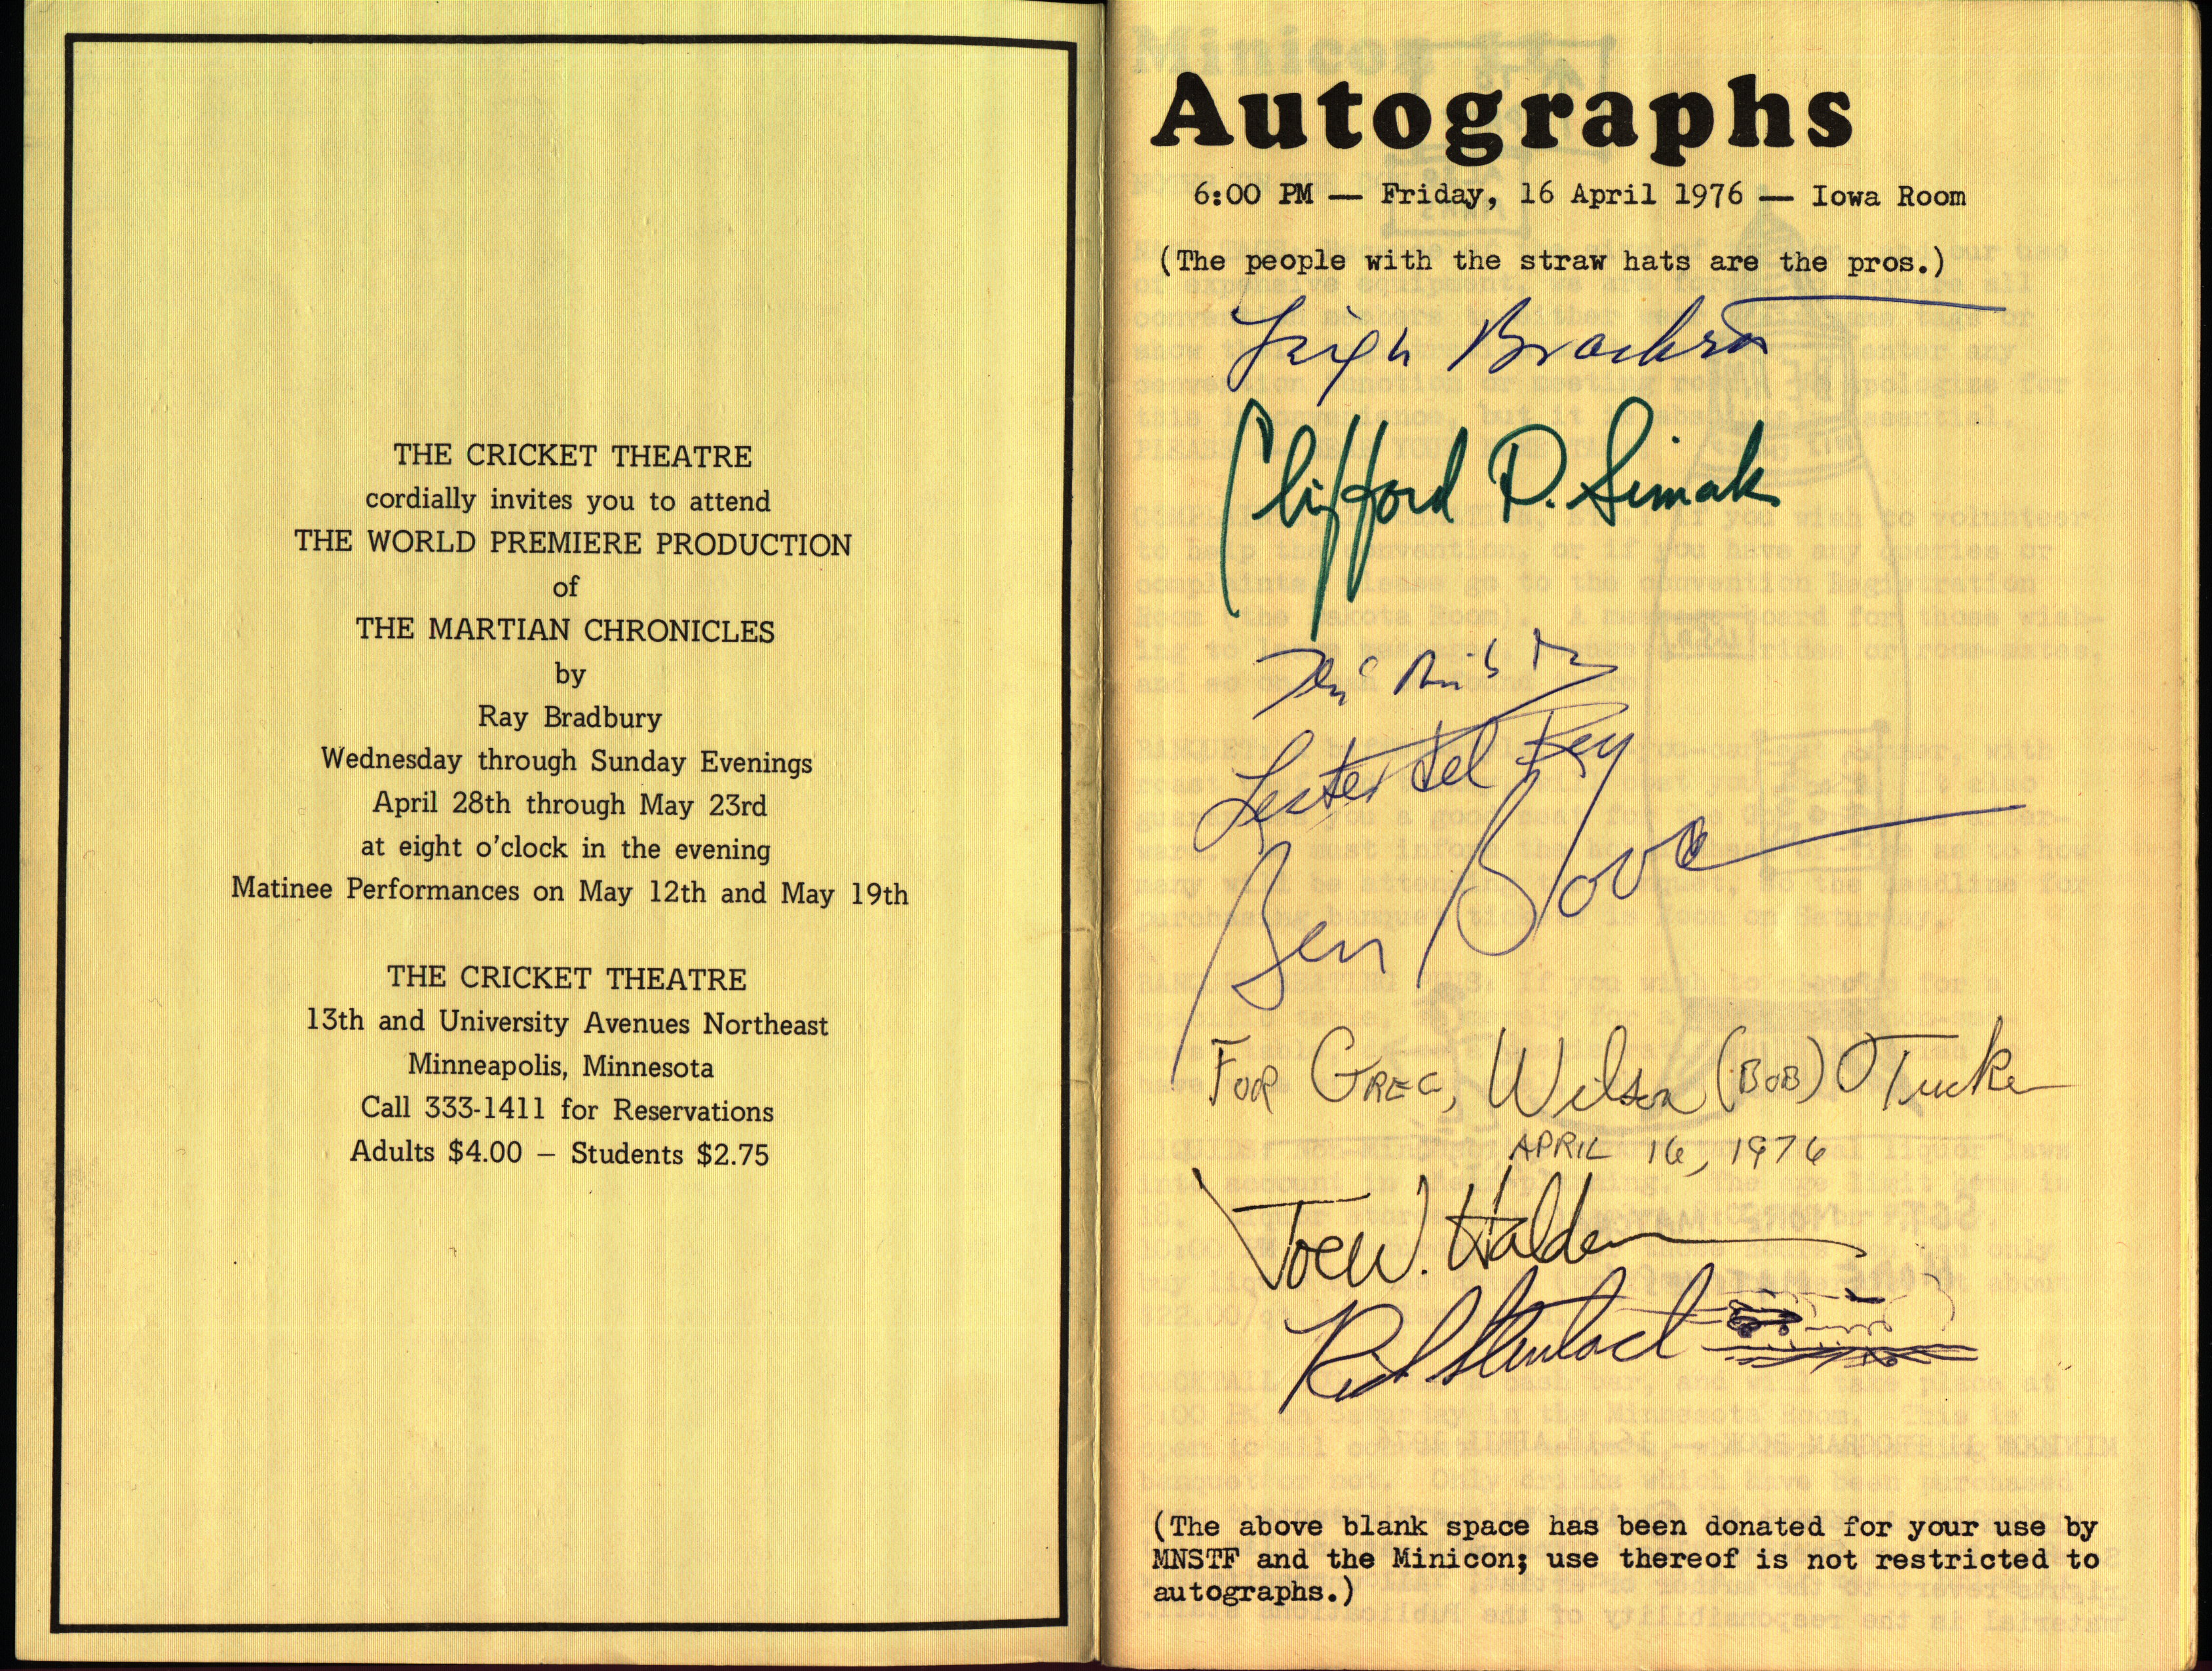 THE CRICKET THEATRE
cordially invites you to attend
THE WORLD PREMIERE PRODUCTION
of
THE MARTIAN CHRONICLES
by
Ray Bradbury
Wednesday through Sunday Evenings
April 28th through May 23rd
at eight o'clock in the evening
Matinee Performances on May 12th and May 19th
THE CRICKET THEATRE
13th and University Avenues Northeast
Minneapolis, Minnesota
Call 333-1411 for Reservations
Adults $4.00 — Students $2.75
Autographs
6:00 PM — Friday, 16 April 1976 — Iowa Room
(The people with the straw hats are the pros.)
Leigh Brackett
Clifford D. Simak
Lester del Rey
Ben Bova
FOR GREG, Wilson (BOB) Tucker
APRIL 16, 1976
Joe W. Haldeman
(The above blank space has been donated for your use by
MNSTF and the Minicon; use thereof is not restricted to
autographs.)